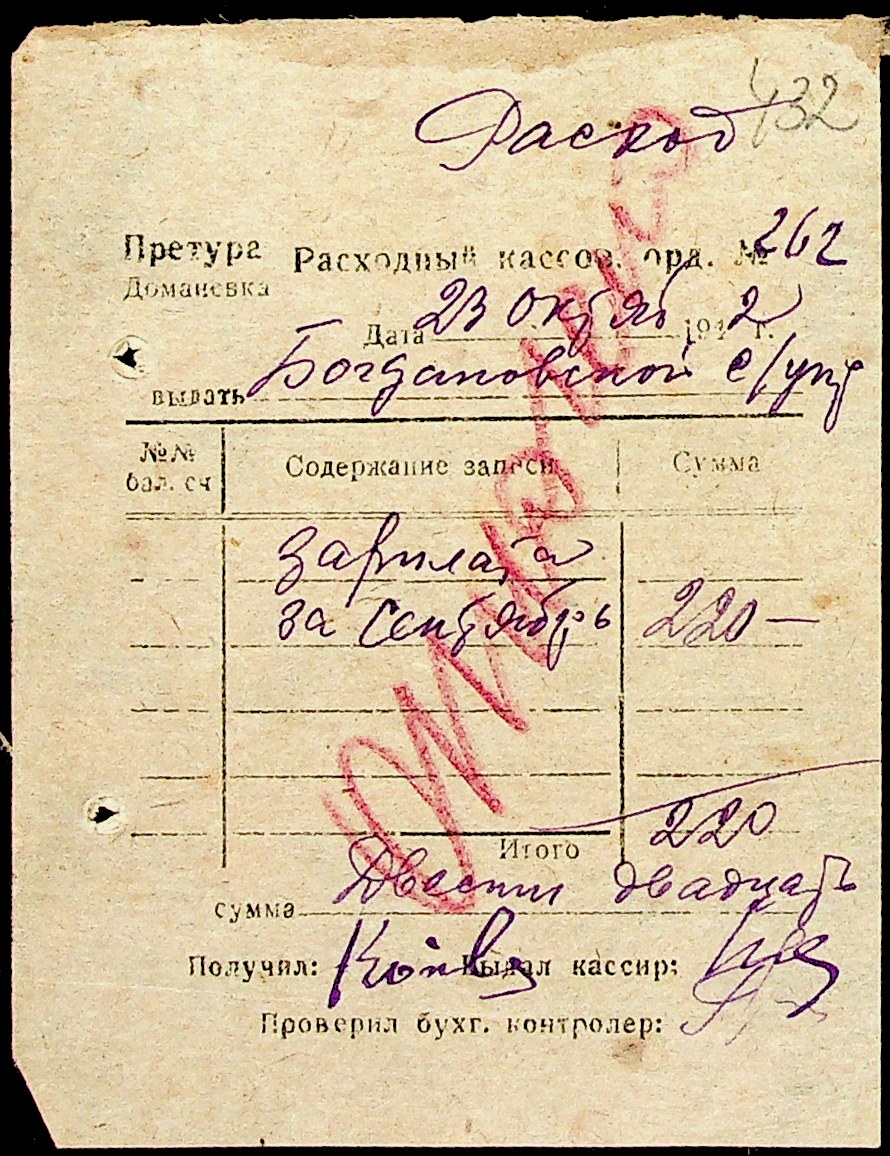 432
Расход
Претура Расходный кассов. орд. № 262
Доманевка
Дата 23 октяб 1942 г.
выдать Богдановской с/упр
№№ бал. сч Содержание записи Сумма
зарплата
за сентябрь 220 —
Итого 220
сумма Двести двадцать
Получил: Выдал кассир:
Проверил бухг. контролер: